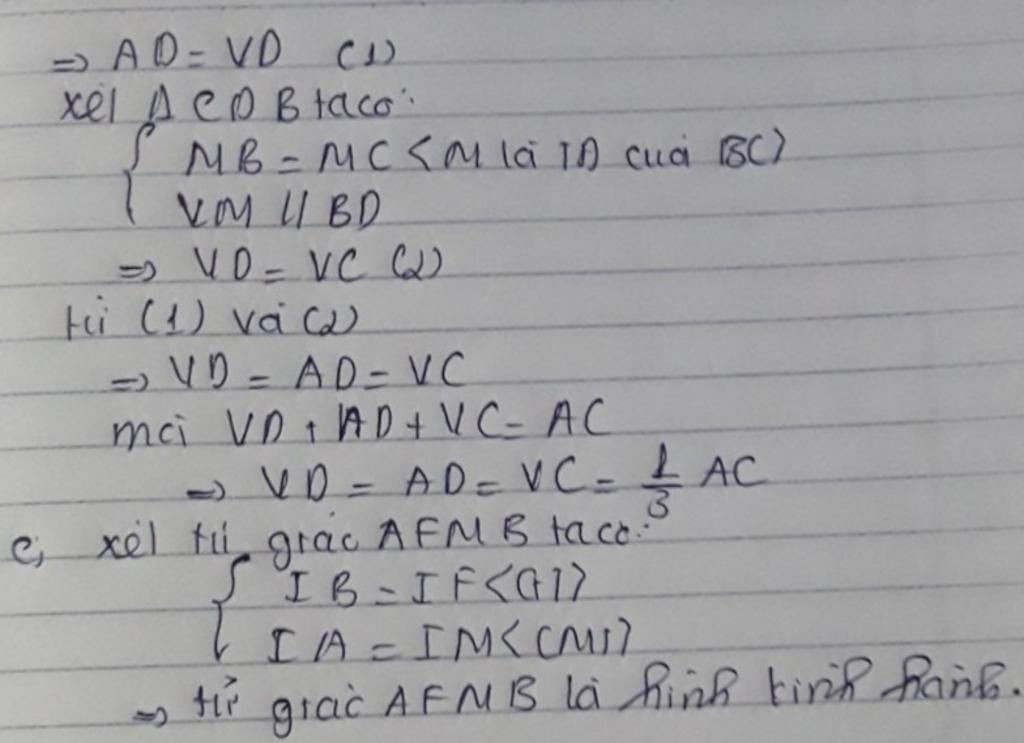 => AD = VD (1)
xét Δ CDB ta có:
{ MB = MC < M là TĐ của BC >
VM // BD
=> VD = VC (2)
từ (1) và (2)
=> VD = AD = VC
mà VD + AD + VC = AC
=> VD = AD = VC = 1/3 AC
c, xét tứ giác AFMB ta có:
{ IB = IF < GT >
IA = IM < CMT >
=> tứ giác AFMB là hình bình hành.